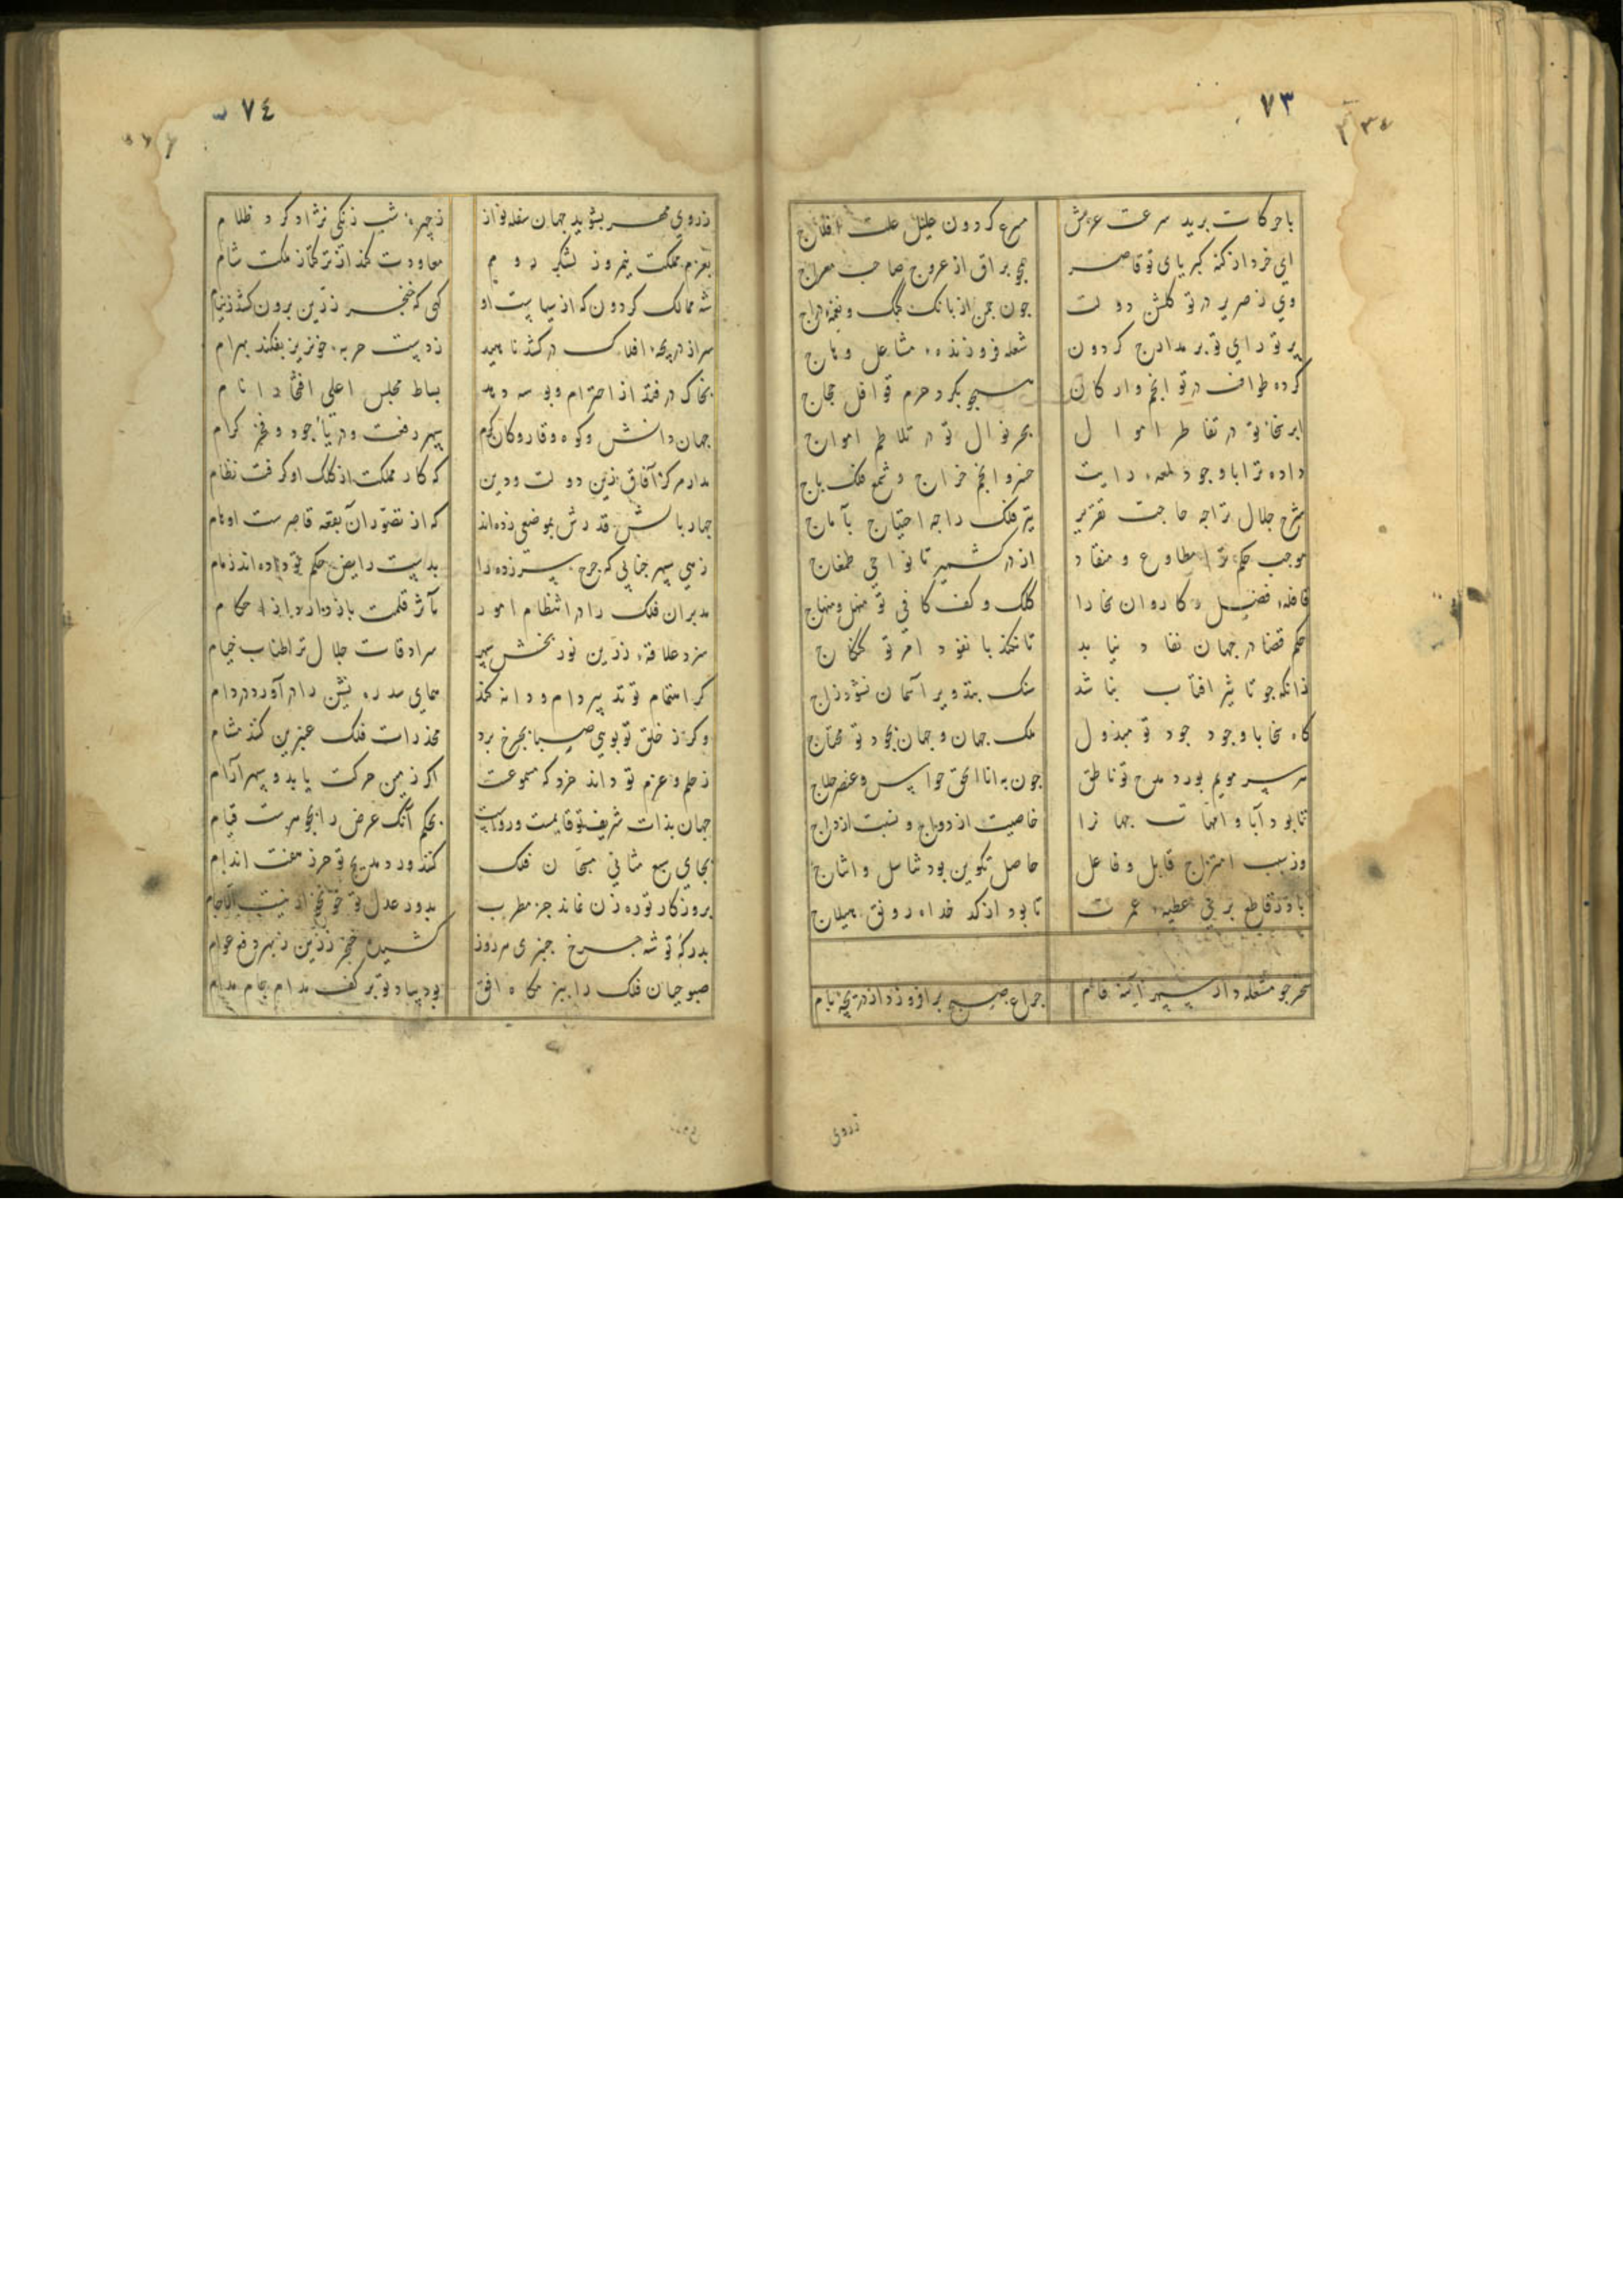 ٧٣
با حرکات برید سرعت عزمش
مسرع کردون علیل علت افلاج
ای خرد از کنه کبریای تو قاصر
همچو براق از عروج صاحب معراج
وی ز صریر در تو کلشن دولت
چون چمن از بانک کبک و نغمه دراج
پرتو رای تو بر مدارج کردون
شعله فروزنده مشاعل وهاج
کرده طواف در تو انجم و ارکان
همچو بکرد حرم قوافل حجاج
ابر سخا تو در تقاطر اموال
بحر نوال تو در تلاطم امواج
داده ترا با وجود لمعه رایت
خسرو انجم خراج و شمع فلک باج
شرح جلال ترا چه حاجت تقریر
تیر فلک را چه احتیاج بآماج
موجب حکم ترا مطاوع و منقاد
از در کشمیر تا نواحی طمغاج
قافله فضل و کاروان سخا را
کلک و کف کافی تو منهل و منهاج
حکم قضا در جهان نفاد نیابد
تا نکند با نفود امر تو کنکاج
زانکه چو تاثیر افتاب نباشد
سنک بتدویر آسمان نشود زاج
کاه سخا با وجود جود تو مبذول
ملک جهان و جهان بجود تو محتاج
هر سر مویم بود بمدح تو ناطق
چون به انا الحق حواس و عنصر حلاج
تا بود آبا و امهات جهانرا
خاصیت ازدواج و نسبت ازواج
وز سبب امتزاج قابل و فاعل
حاصل تکوین بود تناسل و انتاج
باد ز قاطع بری عطیه عمرت
تا بود از کدخداه رونق هیلاج
سحر چو مشعله دار سپهر آینه فام
چراغ صبح برافروزد از دریچه بام
زروی
٧٤
زروی مهر بشوید جهان سفله نواز
ز چهره شب زنکی نژاد کرد ظلام
بعزم مملکت نیمروز لشکر روم
معاودت کند از ترکتاز ملکت شام
شه ممالک کردون که از سیاست او
کهی که خنجر زرین برون کشد ز نیام
سر از دریچه افلاک درکشد ناهید
ز دست حربه خونریز بفکند بهرام
بخاک درفتد از احترام و بوسه دهد
بساط مجلس اعلی افتخار انام
جهان دانش و کوه وقار و کان کرم
سپهر رفعت و دریاء جود و فخر کرام
مدار مرکز آفاق زین دولت و دین
که کار مملکت از کلک او کرفت نظام
چهار بالش قدرش بموضعی زده اند
که از تصور آن بقعه قاصرست اوهام
زهی سپهر جنابی که چرخ سرزده را
بدست رایض حکم تو داده اند زمام
مدبران فلک را در انتظام امور
مآثر قلمت باز دارد از احکام
سزد علاقه زرین نور بخش سپهر
سرادقات جلال ترا طناب خیام
کر اهتمام تو تدبیر دام و دانه کند
همای سدره نشین را در آورد در دام
و کر ز خلق تو بوی صبا بچرخ برد
مخدرات فلک عنبرین کنند مشام
ز حلم و عزم تو داند خرد که ممنوعست
اکر زمین حرکت یابد و سپهر آرام
جهان بذات شریف تو قایمست و رواست
بحکم آنک عرض را بجوهرست قیام
بجای سبع مثانی مسبحان فلک
کنند ورد مدیح تو حرز هفت اندام
بروزکار تو ره زن نماند جز مطرب
بدور عدل تو خونخوار نیست الا جام
بدرکه تو شه چرخ چنبری هر روز
کشیده خنجر زرین ز بهر دفع عوام
صبوحیان فلک را ببزمکاه افق
بود بیاد تو بر کف مدام جام مدام